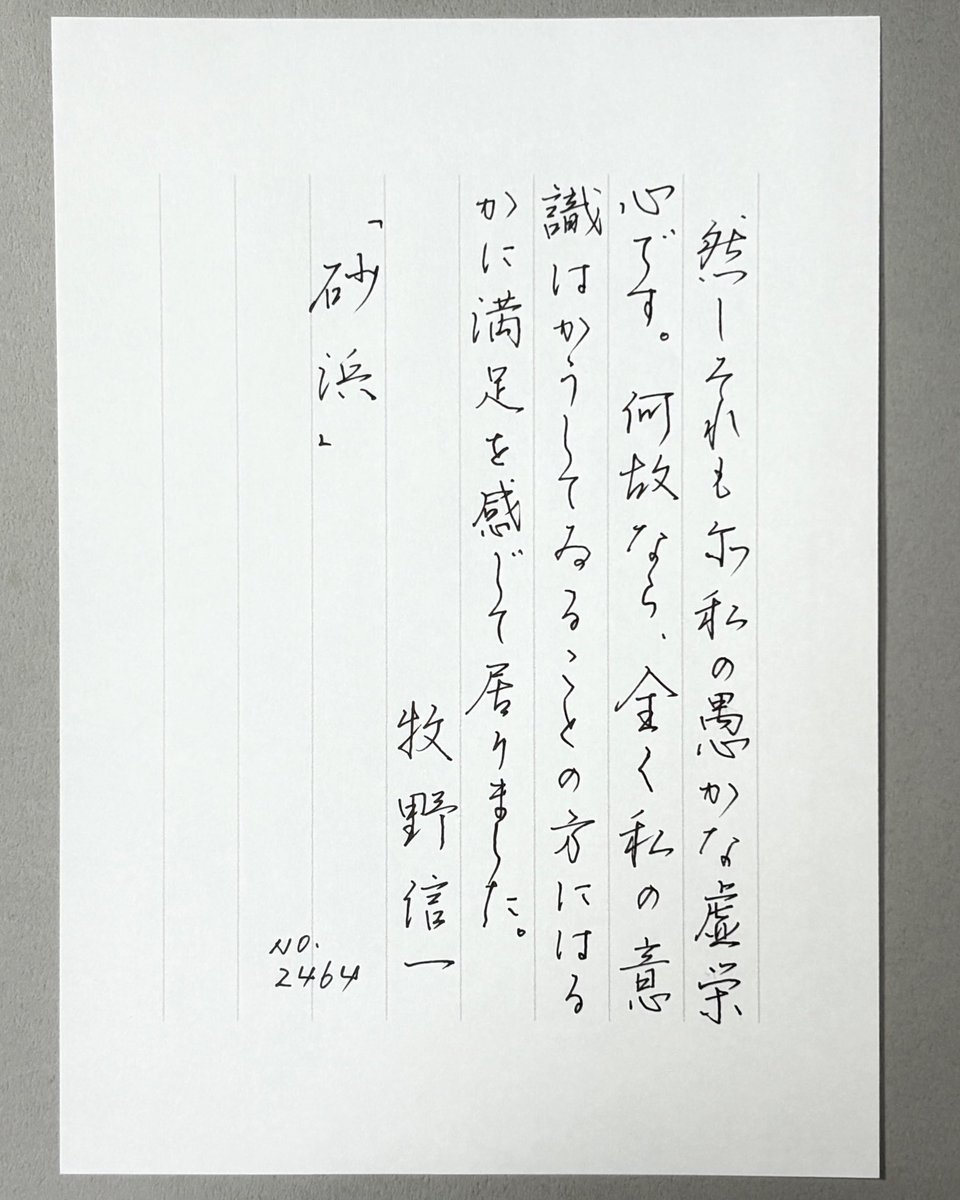 然しそれも尓私の愚かな虚栄
心です。何故なら、全く私の意
識はかうしてゐることの方にはる
かに満足を感じて居りました。
牧野信一
「砂浜」
NO.
2464